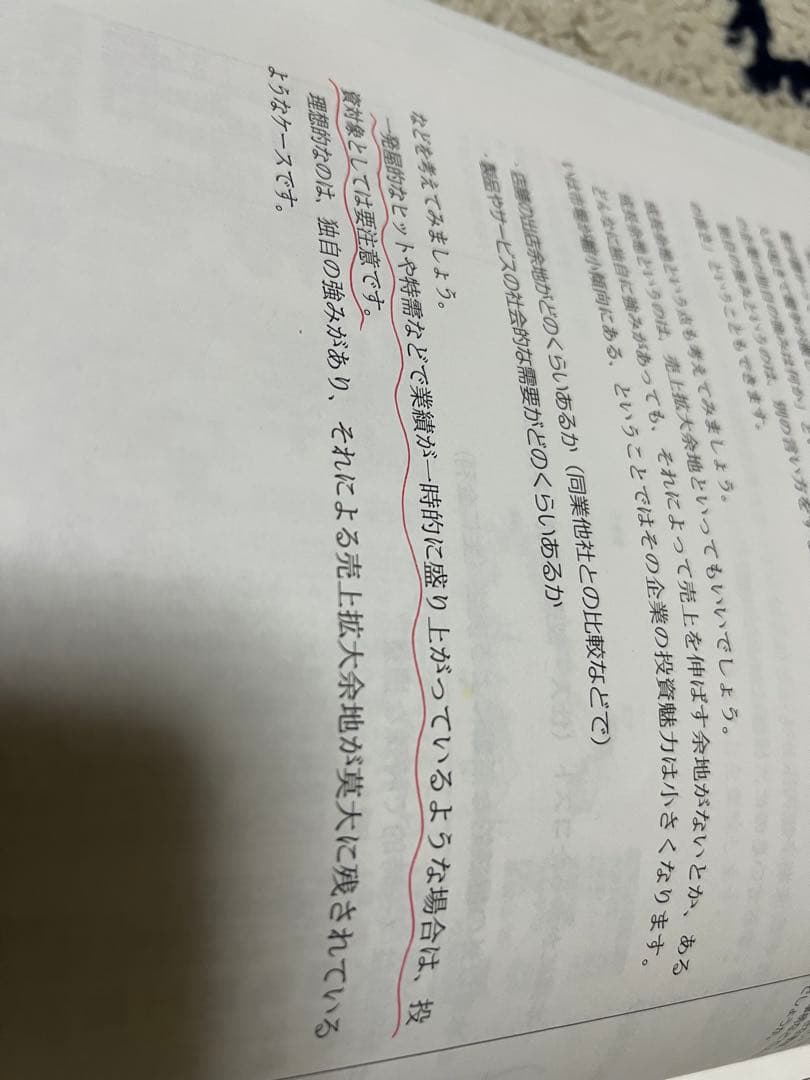 の強さ」ということもできます。
独自の強みというのは、別の言い方をす
成長余地という点も考えてみましょう。
成長余地というのは、売上拡大余地といってもいいでしょう。
どんなに独自に強みがあっても、それによって売上を伸ばす余地がないとか、ある
いは市場が縮小傾向にある、ということではその企業の投資魅力は小さくなります。
・店舗の出店余地がどのくらいあるか（同業他社との比較などで）
・製品やサービスの社会的な需要がどのくらいあるか
などを考えてみましょう。
一発屋的なヒットや特需などで業績が一時的に盛り上がっているような場合は、投
資対象としては要注意です。
理想的なのは、独自の強みがあり、それによる売上拡大余地が莫大に残されている
ようなケースです。